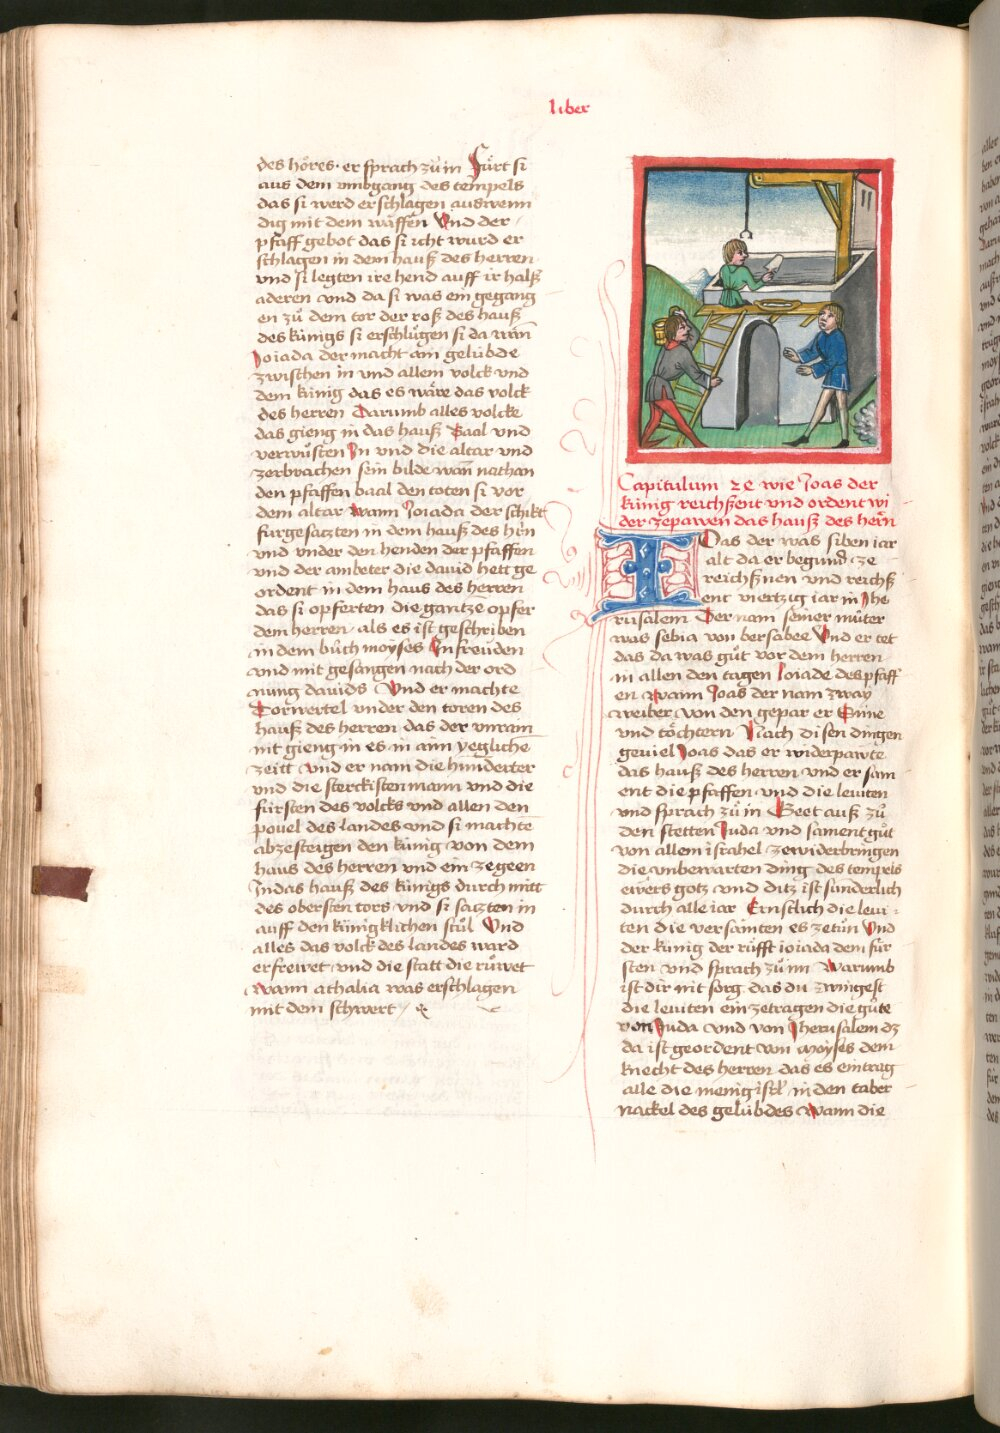 liber
des hőres · er sprach zů in Fůrt si
aus dem vmbgang des tempels
das si werd erschlagen auswenn
dig mit dem wăffen Vnd der
pfaff gebot das si icht wurd er
schlagen in dem hauß des herren
vnd si legten ire hend auff ir halß
aderen vnd da si was ein gegang
en zů dem tor der roß des hauß
des kůnigs si erschlůgen si da wañ
Joiada der macht ain gelúbde
zwischen in vnd allem volck vnd
dem kúnig das es wǎre das volck
des herren Darumb alles volcke
das gieng in das hauß Baal vnd
verwůsten In vnd die altar vnd
zerbrachen sein bilde wañ nathan
den pfaffen baal den toten si vor
dem altar wann Joiada der schikt
fúrgesaczten in dem hauß des hr̃n
vnd vnder den henden der pfaffen
vnd der ambeter die dauid hett ge
ordent in dem haus des herren
das si opferten die gantze opfer
dem herren als es ist geschriben
in dem bůch moyses In freúden
vnd mit gesangen nach der ord
nung dauids Vnd er machte
Torwertel vnder den toren des
hauß des herren das der vnrain
nit gieng in es in ann yeglichẽ
zeitt Vnd er nam die hunderter
vnd die sterckisten mann vnd die
fúrsten des volcks vnd allen den
pouel des landes vnd si machtẽ
abzesteigen den kúnig von dem
haus des herren vnd ein zegeen
In das hauß des kúnigs durch mitt
des obersten tors vnd si saczten in
auff den kúnigklichen stůl Vnd
alles das volck des landes ward
erfrewet vnd die statt die růwet
wann athalia was erschlagen
mit dem schwert
Capitulum 24 wie Joas der
kúnig reichßent vnd ordent wi
der zepawen das hauß des hern̄
Ioas der was siben iar
alt da er begund ze
reichßnen vnd reichß
ent viertzig iar in Jhe
rusalem Der nam seiner můter
was sebia von bersabee Vnd er tet
das da was gůt vor dem herren
in allen den tagen Joiade des pfaff
en wann Joas der nam zway
weiber von den gepar er Súne
vnd tőchtern Nach disen dingen
geuiel Joas das er widerpawte
das hauß des herren vnd er sam
ent die pfaffen vnd die leuiten
vnd sprach zů in Geet auß zů
den stetten Juda vnd sament gůt
von allem israhel zewiderbringen
die vnbewarten ding des tempels
ewers gotz vnd ditz ist sunderlich
durch alle iar Ernstlich die leui
ten die versamten es zetůn Vnd
der kúnig der růfft ioiada dem fúr
sten vnd sprach zů im Warumb
ist dir nit sorg das du zwingest
die leuiten ein zetragen die gúte
von Juda vnd von Jherusalem dz
da ist geordent von moyses dem
knecht des herren das es eintrag
alle die menig isřl in den taber
nackel des gelúbdes Wann die